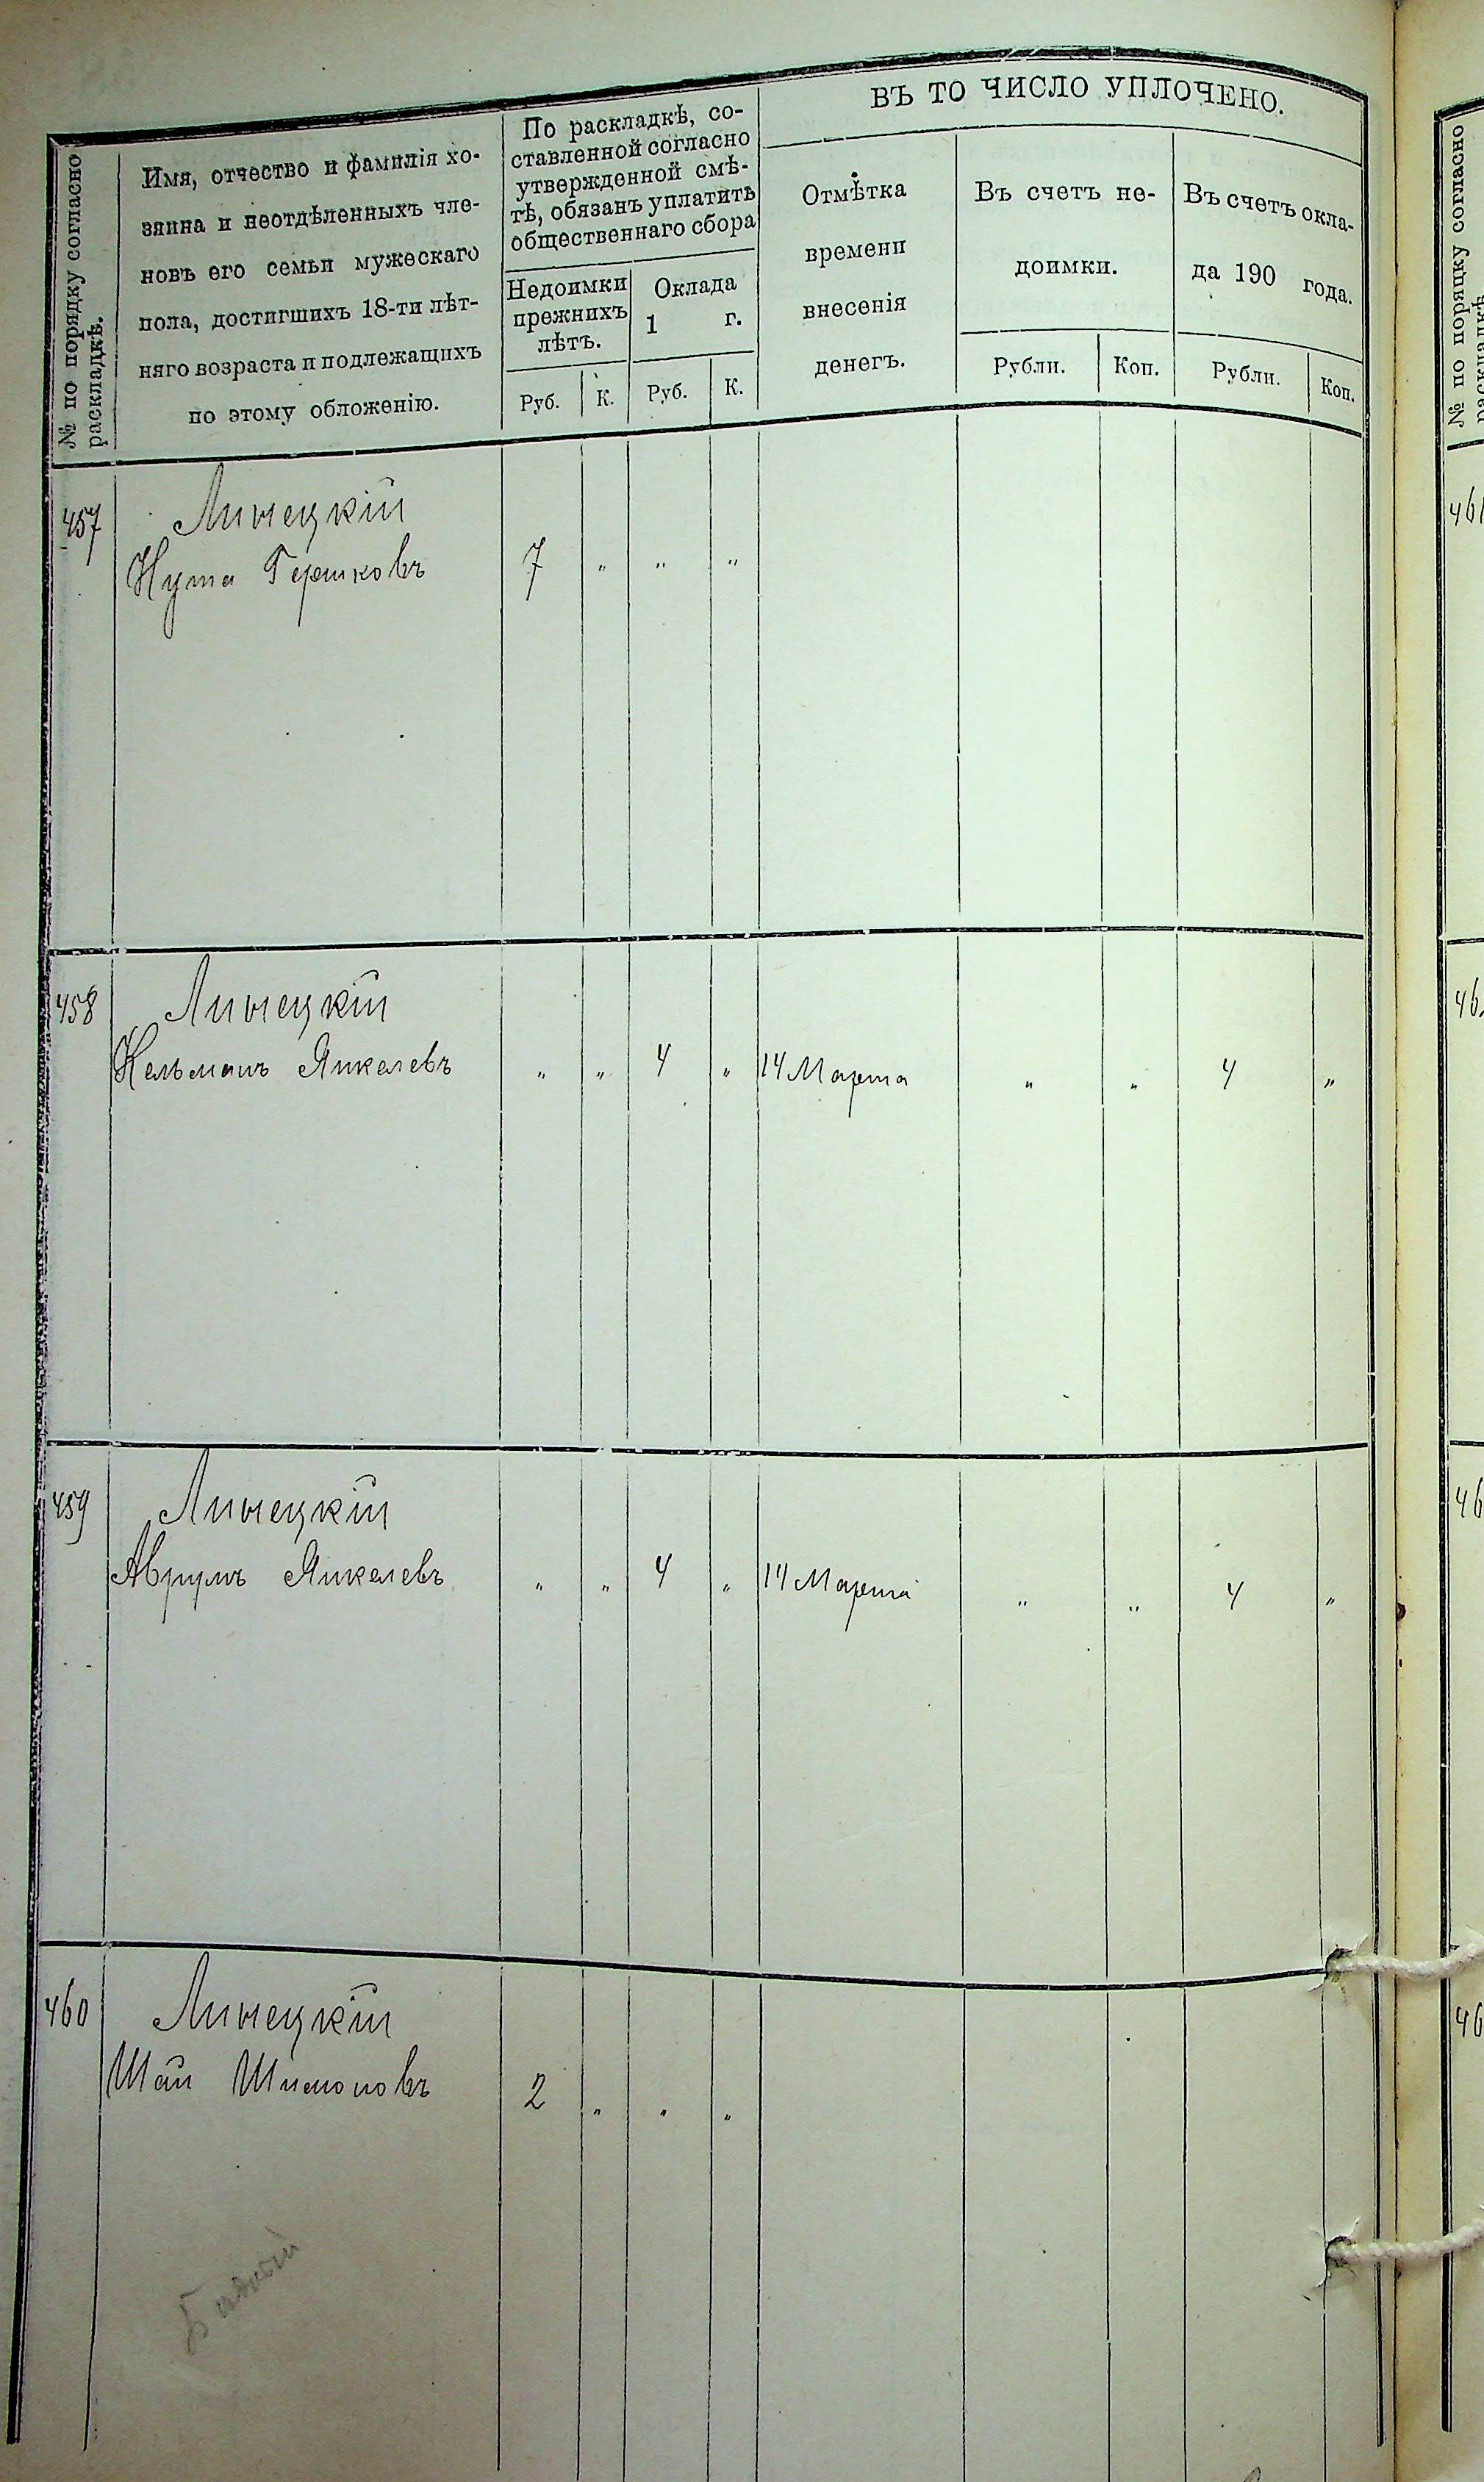 № по порядку согласно
раскладкѣ.
Имя, отчество и фамилія хо-
зяина и неотдѣленныхъ чле-
новъ его семьи мужескаго
пола, достигшихъ 18-ти лѣт-
няго возраста и подлежащихъ
по этому обложенію.
По раскладкѣ, со-
ставленной согласно
утвержденной смѣ-
тѣ, обязанъ уплатить
общественнаго сбора
Недоимки
прежнихъ
лѣтъ.
Руб. К.
Оклада
1 г.
Руб. К.
ВЪ ТО ЧИСЛО УПЛОЧЕНО.
Отмѣтка
времени
внесенія
денегъ.
Въ счетъ не-
доимки.
Рубли. Коп.
Въ счетъ окла-
да 190 года.
Рубли. Коп.
457 Линецкій
Нута Гершковъ 7 " " "
458 Линецкій
Кельманъ Янкелевъ " " 4 " 14 Марта " " 4 "
459 Линецкій
Аврумъ Янкелевъ " " 4 " 14 Марта " " 4 "
460 Линецкій
Шая Шимоновъ 2 " " "
№ по порядку согласно
раскладкѣ
461
46
46
46